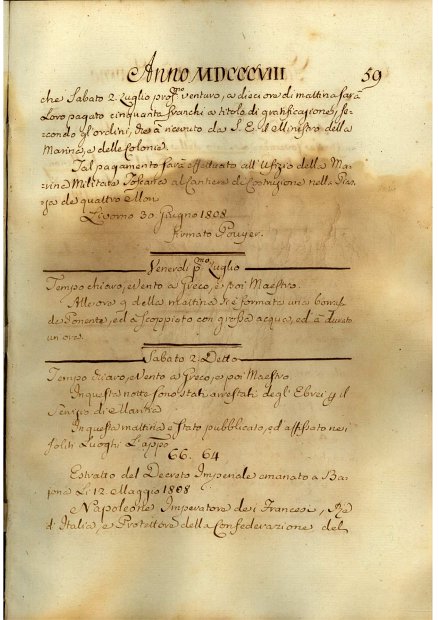 Anno MDCCCVIII 59
che Sabato 2. Luglio pros.mo venturo, a dieci ore di mattina sarà
Loro pagato cinquanta franchi a titolo di gratificazione, se-
condo gl'ordini, che à ricevuto da S. E. il Ministro della
Marina, e delle Colonie.
Tal pagamento sarà effettuato all'Ufizio della Ma-
rina Militare Toscana al Cantiere di Costruzione nella Piaz-
za de quattro Mori
Livorno 30. Giugno 1808.
Firmato Pouyer.
Venerdì p.mo Luglio
Tempo chiaro, e Vento a Greco, e poi Maestro.
Alle ore 9 della mattina si è formata una borra-
da Ponente, ed à scoppiato con grossa acqua, ed à durato
un ore.
Sabato 2. Detto
Tempo chiaro, e Vento a Greco, e poi Maestro.
In questa notte sono stati arrestati degl'Ebrei p il
Servizio di Marina
In questa mattina è stato pubblicato, ed affissato nei
soliti Luoghi L'appo
66. 64
Estratto del Decreto Imperiale emanato a Ba-
jona Li 12. Maggio 1808
Napoleone Imperatore dei Francesi, Re
d'Italia, e Protettore della Confederazione del